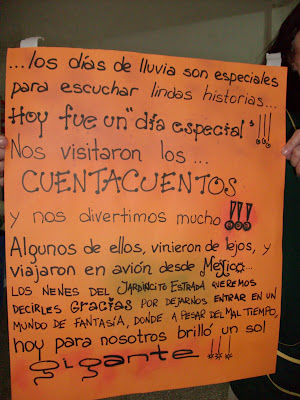 ...los días de lluvia son especiales
para escuchar lindas historias...
Hoy fue un "día especial"!!!
Nos visitaron los ...
CUENTACUENTOS
y nos divertimos mucho!!!
Algunos de ellos, vinieron de lejos, y
viajaron en avión desde México...
LOS NENES DEL JARDINCITO ESTRADA QUEREMOS
DECIRLES GRACIAS POR DEJARNOS ENTRAR EN UN
MUNDO DE FANTASÍA, DONDE A PESAR DEL MAL TIEMPO,
hoy para nosotros brilló un sol
gigante !!!